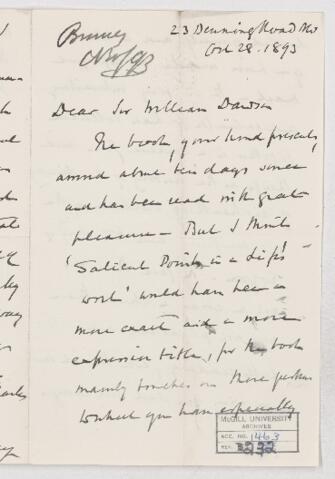 Burney
Nov/93
23 Denning Road NW
Oct 28. 1893
Dear Sir William Dawson
The book, your kind present,
arrived about ten days since
and has been read with great
pleasure - But I think
'Salient Points in a Life's
work' would have been a
more exact and a more
expressive title, for the book
mainly touches on those portions
to which you have especially
McGILL UNIVERSITY
ARCHIVES
ACC. NO. 1463
REF. 232